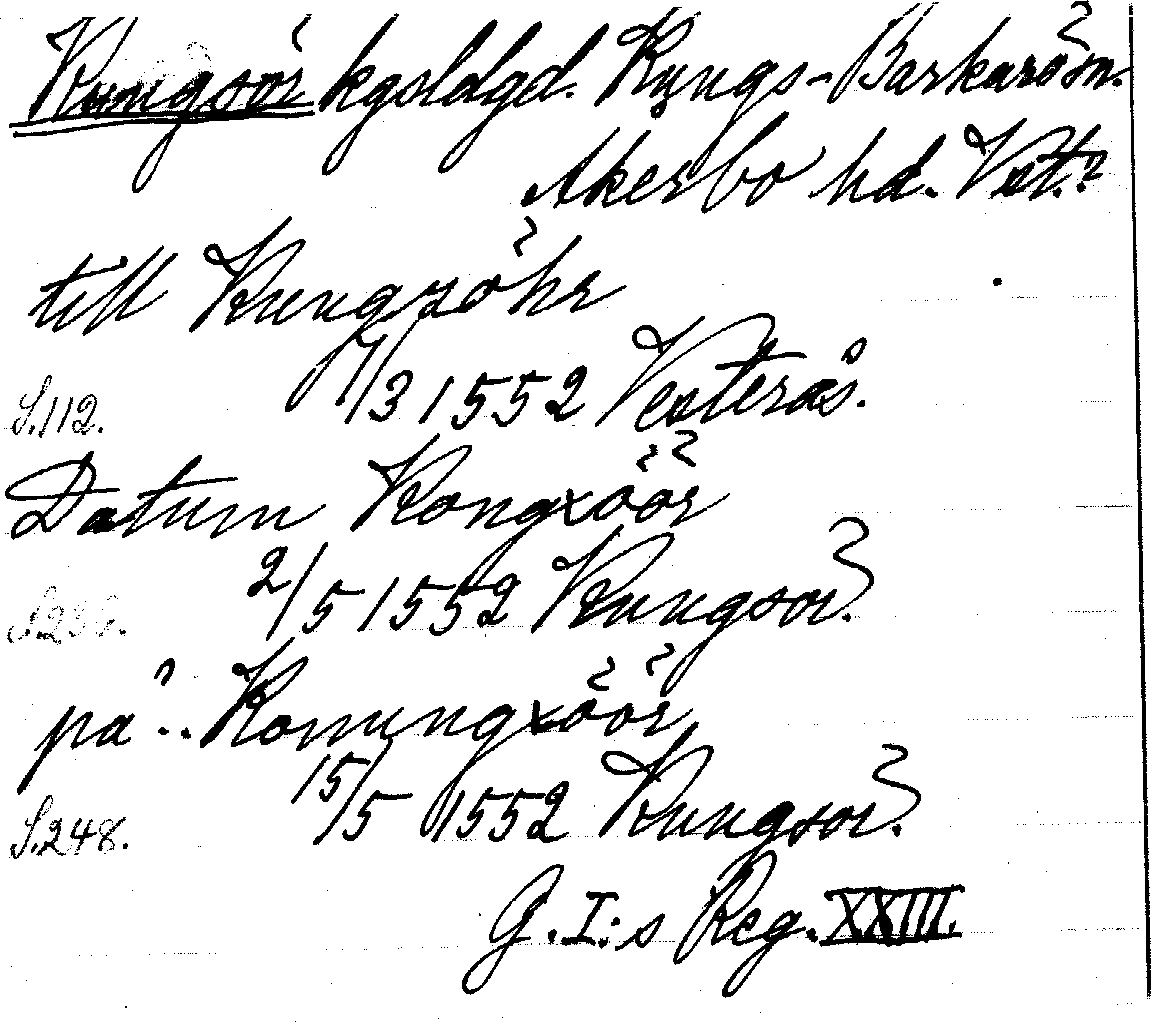 Kungsör kgsldgd. Kungs-Barkarö sn.
Åkerbo hd. Vst.
till Kungzöhr
S.112. 17/3 1552 Vesterås.
Datum Kongxöör
2/5 1552 Kungsör.
på .. Konungxöör
S.248. 15/5 1552 Kungsör.
G.I:s Reg. XXIII.